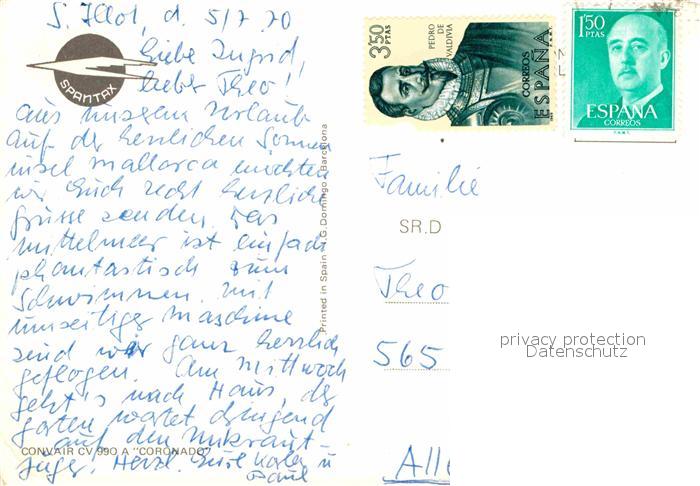 S. Illot, d. 5/7 70
Liebe Ingrid,
lieber Theo!
aus unserem Urlaub
auf der herrlichen Sonnen
insel Mallorca möchten
wir Euch recht herzliche
Grüsse senden. Das
Mittelmeer ist einfach
phantastisch zum
Schwimmen. Mit
umseitiger Maschine
sind wir ganz herrlich
geflogen. Am Mittwoch
geht's nach Haus, der
Garten wartet dringend
auf den Unkraut-
jäger! Herzl. Eure u
Paul
SPANTAX
CONVAIR CV 990 A "CORONADO"
Printed in Spain - G. Domingo - Barcelona
3'50 PTAS
PEDRO DE VALDIVIA
CORREOS
ESPAÑA
1'50 PTAS
ESPAÑA
CORREOS
F.N.M.T.
Familie
SR.D
Theo
565
Alle
privacy protection
Datenschutz